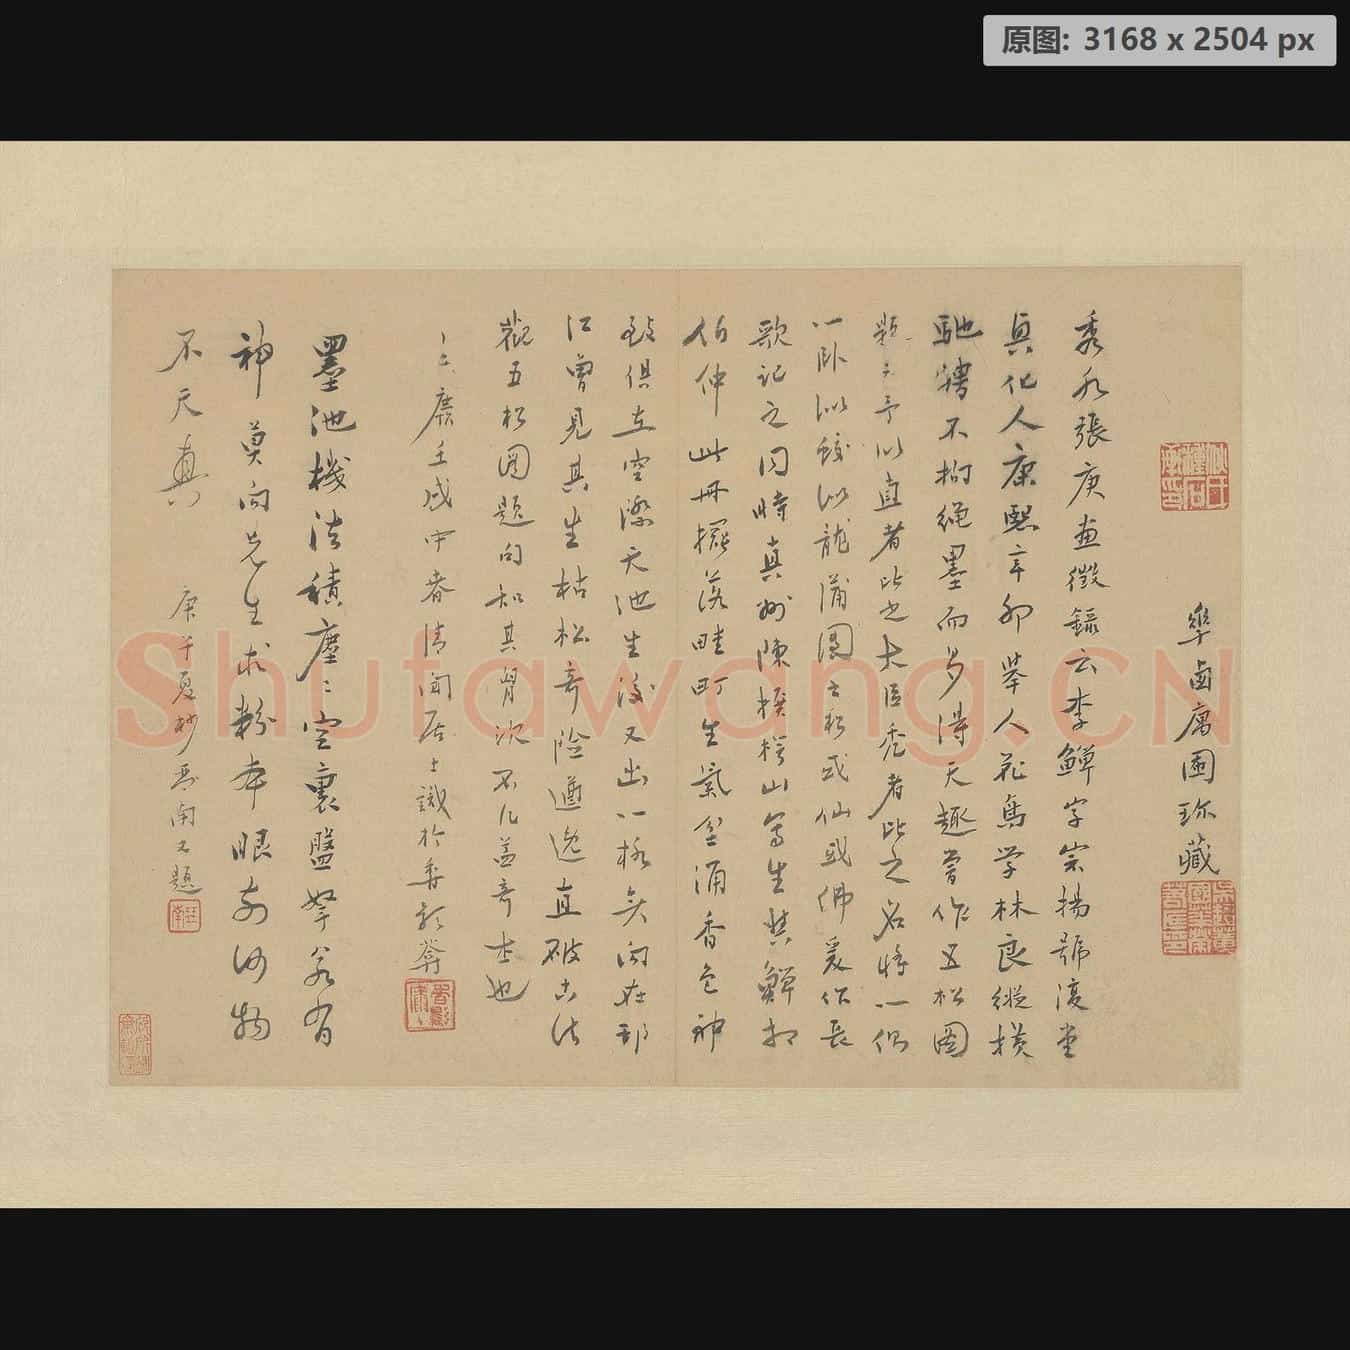 原图: 3168 x 2504 px
㡭卤庽圃珎藏
秀水張庚画徵錄云李鱓字宗揚號復堂
興化人康熙辛卯舉人花鳥学林良縱横
馳騁不拘绳墨而多得天趣嘗作五松圖
題云予以直者比之大臣秃者比之名将一侧
一卧似蛟似龍蒲團之松或仙或佛爰作長
歌記之同時真州陳撰楞山寫生與鱓相
伯仲此册擺落畦町生氣坌涌香色神
致俱在空際天池生後又出一格矣向在邗
江曾見其生枯松奇险遒逸直破古法
觀五松圖題句知其胷次不凡蓋奇士也
壬戌中春清閒居士識於
墨池機法積塵塵空裏盤拏若有
神莫向先生求粉本眼前何物
不天真
庚午夏杪 又題
Shufawang.CN